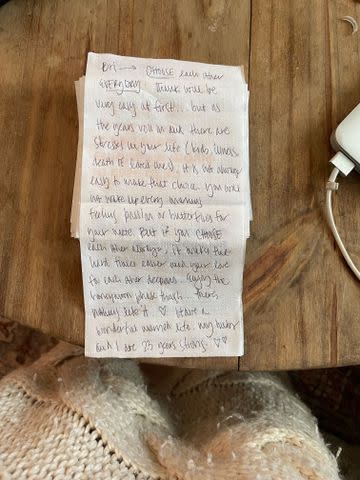 Bri → CHOOSE each other
EVERYDAY. Think will be
very easy at first... but as
the years roll in and there are
stresses in your life (kids, illness,
death of loved ones), it is not always
easy to make that choice. You will
not wake up every morning
feeling passion or butterflies for
your mate. But if you CHOOSE
each other always, it makes the
hard times easier and your love
for each other deepens. Enjoy the
honeymoon phase tho... There's
nothing like it ♡ Have a
wonderful married life. My hubby
and I are 23 years strong. ♡♡